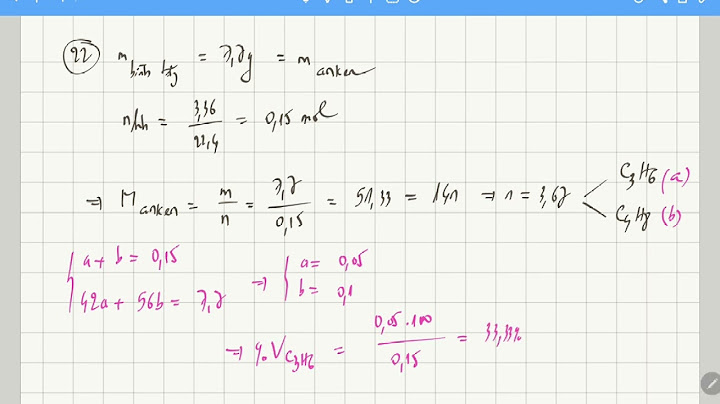 22 m bình tăng = 7,7g = m anken
n hh = 3,36 / 22,4 = 0,15 mol
⇒ M anken = m / n = 7,7 / 0,15 = 51,33 = 14n ⇒ n = 3,67 C3H6 (a) C4H8 (b)
a + b = 0,15 ⇒ a = 0,05
42a + 56b = 7,7 b = 0,1
⇒ %V C3H6 = 0,05 . 100 / 0,15 = 33,33%